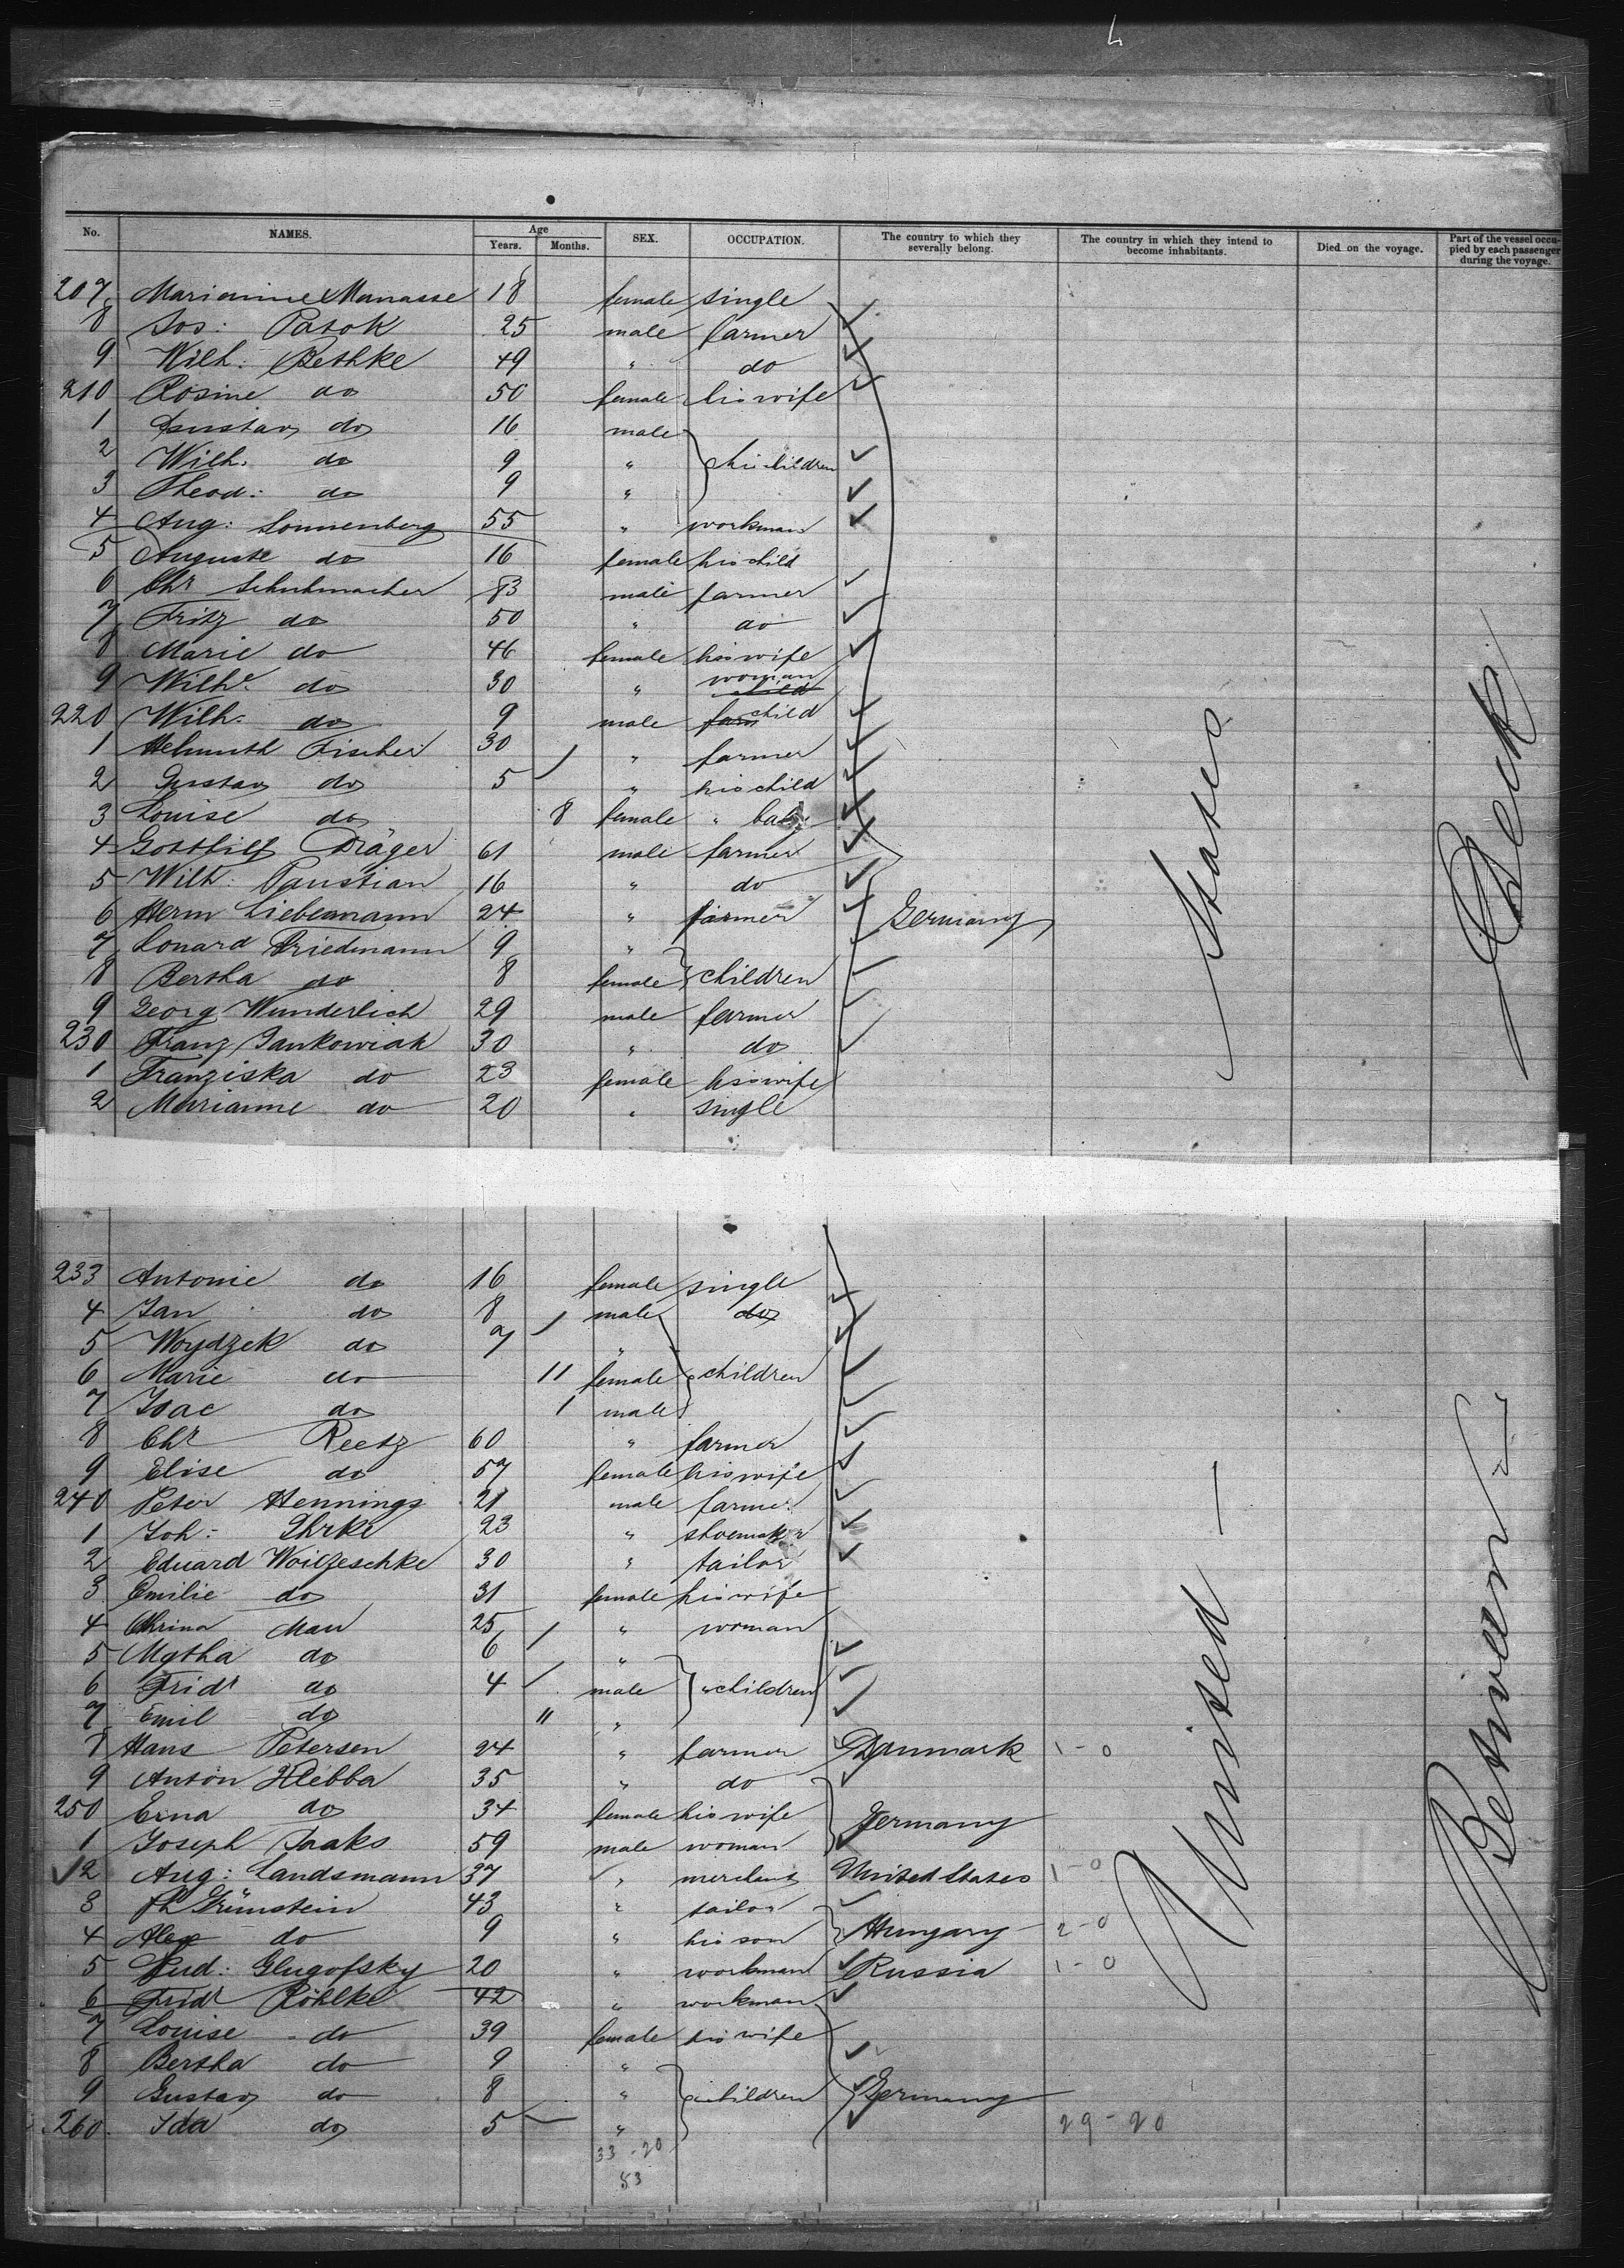 No. NAMES. Age Years. Months. SEX. OCCUPATION. The country to which they severally belong. The country in which they intend to become inhabitants. Died on the voyage. Part of the vessel occupied by each passenger during the voyage.
207 Marianne Manasse 18 female single
8 Jos: Patok 25 male farmer
9 Wilh. Bethke 49 " do
210 Rosine do 50 female his wife
1 Gustav do 16 male
2 Wilh. do 9 " his children
3 Theod: do 9 "
4 Aug: Sonnenberg 55 " workman
5 Auguste do 16 female his child
6 Chr Schuhmacher 83 male farmer
7 Fritz do 50 " do
8 Marie do 46 female his wife
9 Wilhe do 30 " woman child
220 Wilh. do 9 male farm child
1 Helmuth Fischer 30 " farmer
2 Gustav do 5 " his child
3 Louise do 8 female " baby
4 Gottlieb Dräger 61 male farmer
5 Wilh: Paustian 16 " do
6 Herm Liebemann 24 " farmer Germany
7 Lonard Friedmann 9 "
8 Bertha do 8 female children
9 Georg Wunderlich 29 male farmer
230 Franz Jankowiak 30 " do
1 Franziska do 23 female his wife
2 Marianne do 20 " single
233 Antonie do 16 female single
4 Jan do 8 male do
5 Woydzek do 7 "
6 Marie do 11 female children
7 Isac do 1 male
8 Chr Reetz 60 " farmer
9 Elise do 57 female his wife
240 Peter Hennings 21 male farmer
1 Joh: Ihrke 23 " shoemaker
2 Eduard Woitzeschke 30 " tailor
3 Emilie do 31 female his wife
4 Chrina Mau 25 " woman
5 Mytha do 6 "
6 Fridr do 4 male " children
7 Emil do 11 "
8 Hans Petersen 24 " farmer Danmark 1-0
9 Anton Klebba 35 " do
250 Erna do 34 female his wife Germany
1 Joseph Paaks 59 male woman
2 Aug: Landsmann 37 " merchant United States 1-0
3 Ph Grünstein 43 " tailor
4 Alex do 9 " his son Hungary 2-0
5 Lud: Glugofsky 20 " workman Russia 1-0
6 Fridr Röhlke 42 " workman
7 Louise do 39 female his wife
8 Bertha do 9 "
9 Gustav do 8 " children Germany
260 Ida do 5 " 29-20
33-20
53
United States
Between Deck